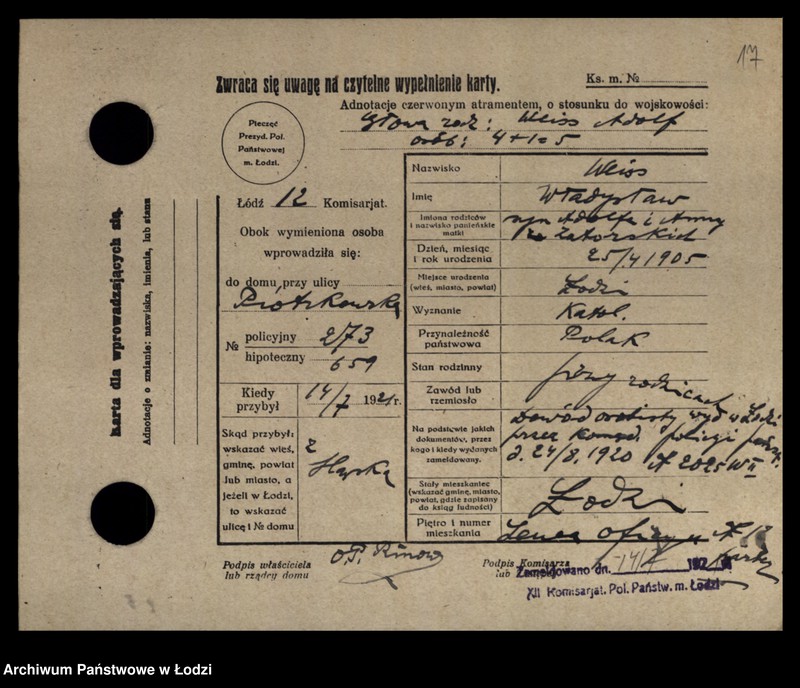 17
Zwraca się uwagę na czytelne wypełnienie karty.
Ks. m. №
Adnotacje czerwonym atramentem, o stosunku do wojskowości:
Głowa rodz: Weiss Adolf
osób: 4+1=5
Pieczęć
Prezyd. Pol.
Państwowej
m. Łodzi.
Łódź 12 Komisarjat.
Obok wymieniona osoba
wprowadziła się:
do domu przy ulicy
Piotrkowska
№ policyjny 273
hipoteczny 659
Kiedy przybył 14/7 1921r.
Skąd przybył:
wskazać wieś,
gminę, powiat
lub miasto, a
jeżeli w Łodzi,
to wskazać
ulicę i № domu
z
Nazwisko Weiss
Imię Władysław
Imiona rodziców
i nazwisko panieńskie
matki
syn Adolfa i Anny
z Zatorskich
Dzień, miesiąc
i rok urodzenia
25/4 1905
Miejsce urodzenia
(wieś, miasto, powiat)
Łodzi
Wyznanie Katol.
Przynależność
państwowa
Polak
Stan rodzinny
Zawód lub
rzemiosło
przy rodzicach
Na podstawie jakich
dokumentów, przez
kogo i kiedy wydanych
zameldowany.
Dowód osobisty wyd w Łodzi
przez Komend. policji
d. 24/8. 1920 № 2025
Stały mieszkaniec
(wskazać gminę, miasto,
powiat, gdzie zapisany
do ksiąg ludności)
Łodzi
Piętro i numer
mieszkania
lewa oficyna № 13
Podpis właściciela
lub rządcy domu
Podpis Komisarza
lub
Zameldowano dn. 14/7 192
XII Komisarjat. Pol. Państw. m. Łodzi
Karta dla wprowadzających się.
Adnotacje o zmianie: nazwiska, imienia, lub stanu
Archiwum Państwowe w Łodzi